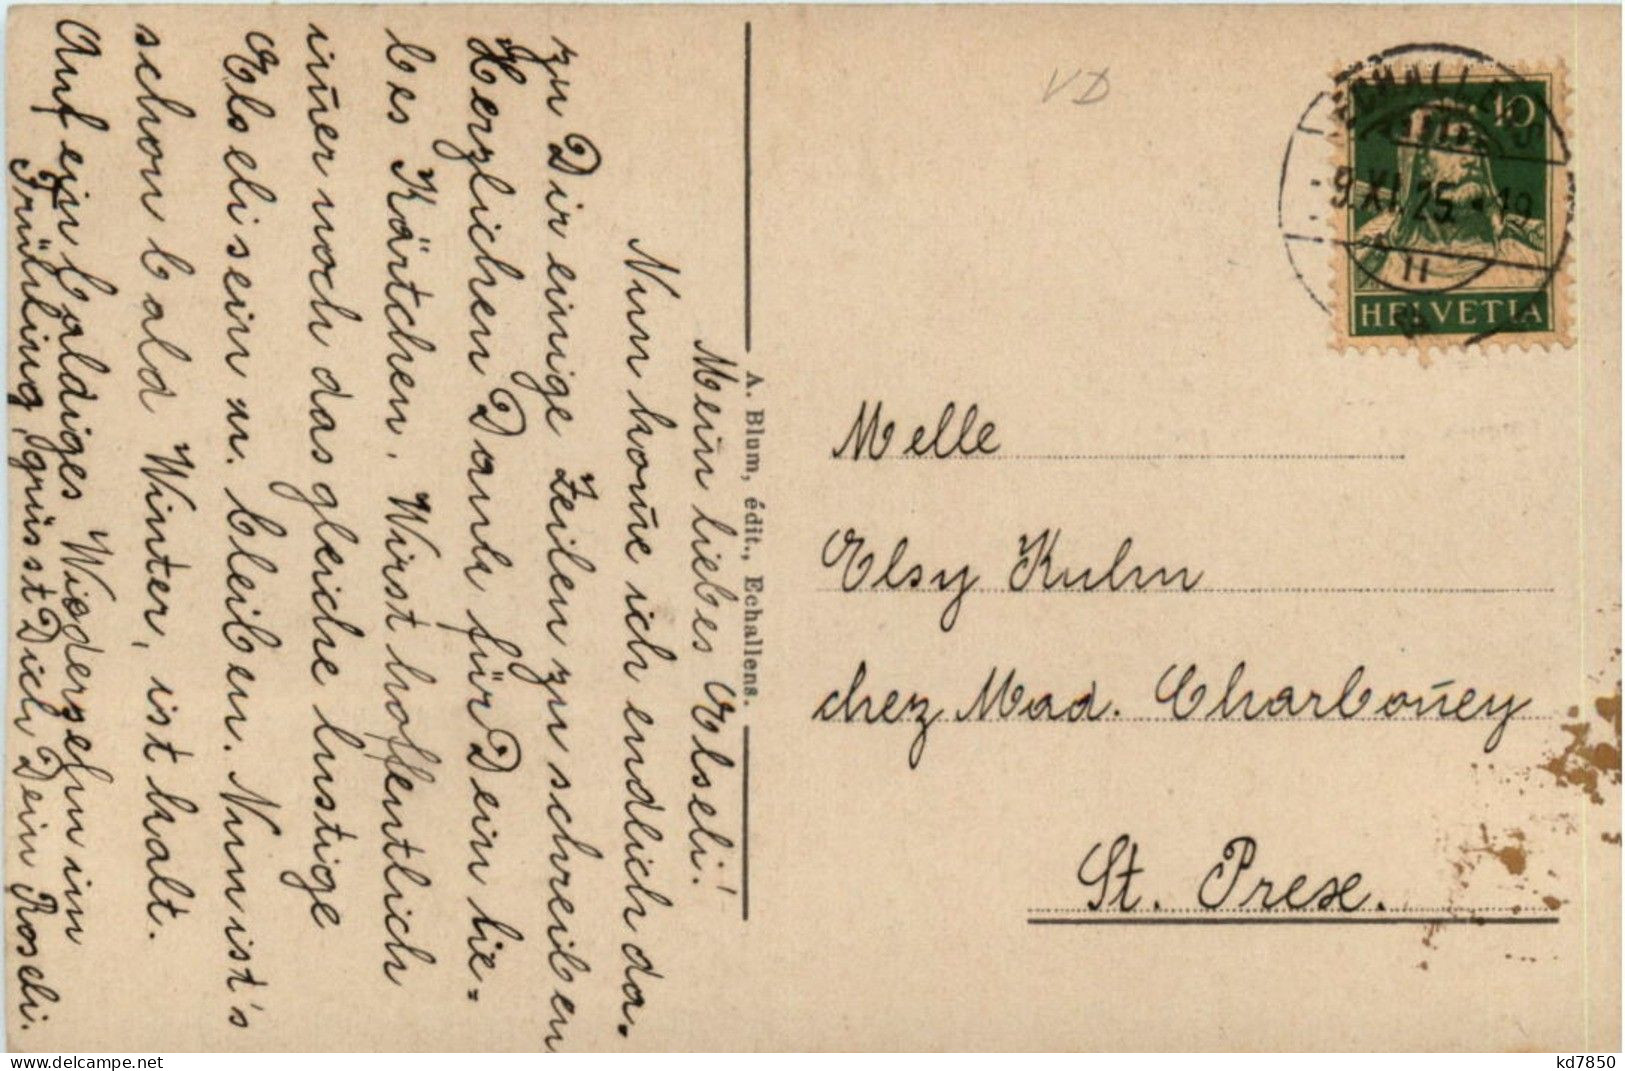 Mein liebes Elseli!
Nun kom̄e ich endlich da.
zu Dir einige Zeilen zu schreiben
Herzlichen Dank für Dein lie=
bes Kärtchen. Wirst hoffentlich
im̄er noch das gleiche lustige
Elseli sein u. bleiben. Nun ist's
schon bald Winter, ist kalt.
Auf ein baldiges Wiedersehn im
Frühling, grüsst Dich Dein Roseli.
A. Blum, édit., Echallens.
VD
ECHALLENS
-9.XI.25.-19
10
HELVETIA
Melle
Elsy Kulm
chez Mad. Charbon̄ey
St. Prex.
delcampe.net
kd7850